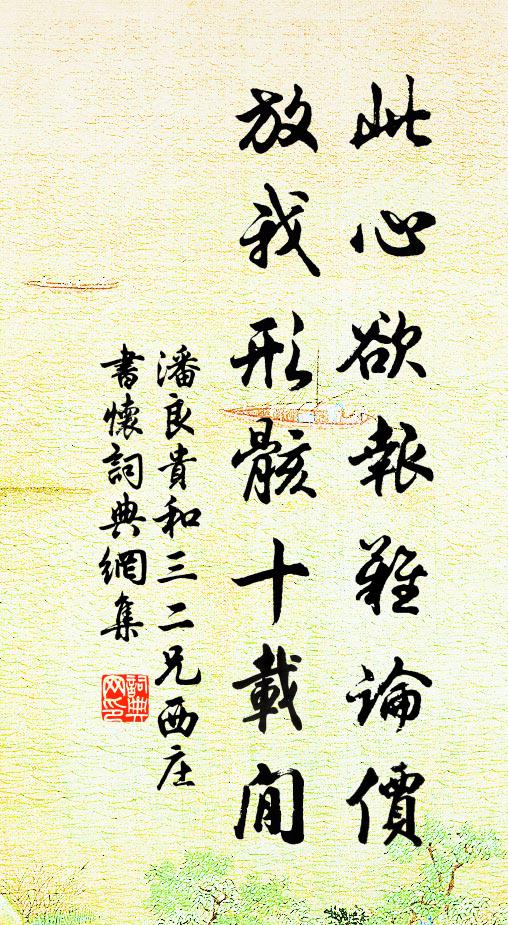 此心欲報難論價
放我形骸十載閒
潘良貴和三二兄西庄
書懷詞典網集
詞典
网印